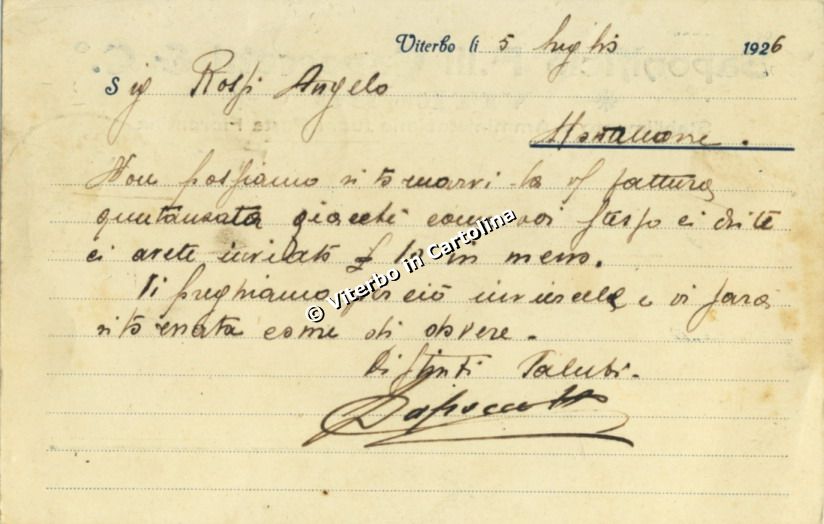 Viterbo li 5 luglio 1926
Sig Rossi Angelo
Non possiamo ritornarvi la Vs fattura
quietansata giacchè come voi stesso ci dite
ci avete inviato £ 10 in meno.
Vi preghiamo perciò inviarcele e vi sarà
ritornata come di dovere.
Distinti Saluti.
© Viterbo in Cartolina